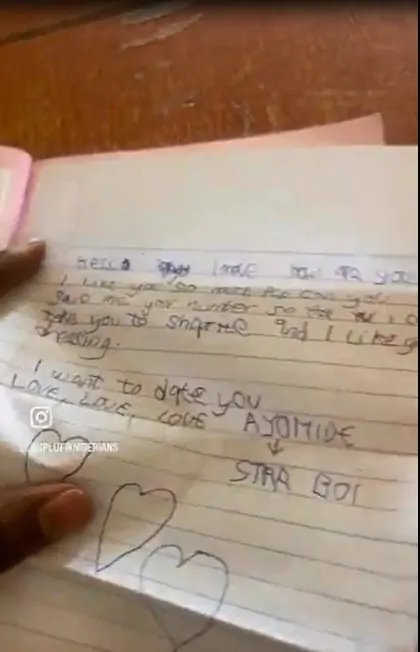 Hello love how are you
I like you so much Ple can you
me your number so that I
take you to sharme and I like
dressing.
I want to date you
LOVE, LOVE, LOVE AYOMIDE
STRA BOI